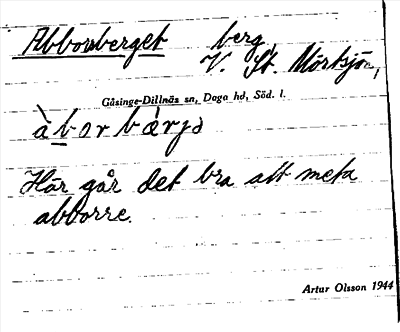 Abborberget berg,
V. St. Mörtsjön,
Gåsinge-Dillnäs sn, Daga hd, Söd. l.
àbor bærjə
Här går det bra att meta
abborre.
Artur Olsson 1944